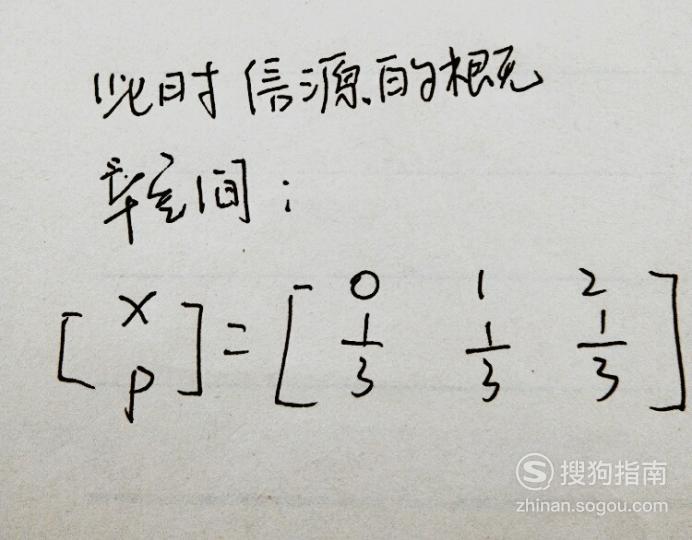 此时信源的概
率空间：
[X P] = [0 1 2 1/3 1/3 1/3]
搜狗指南
zhinan.sogou.com